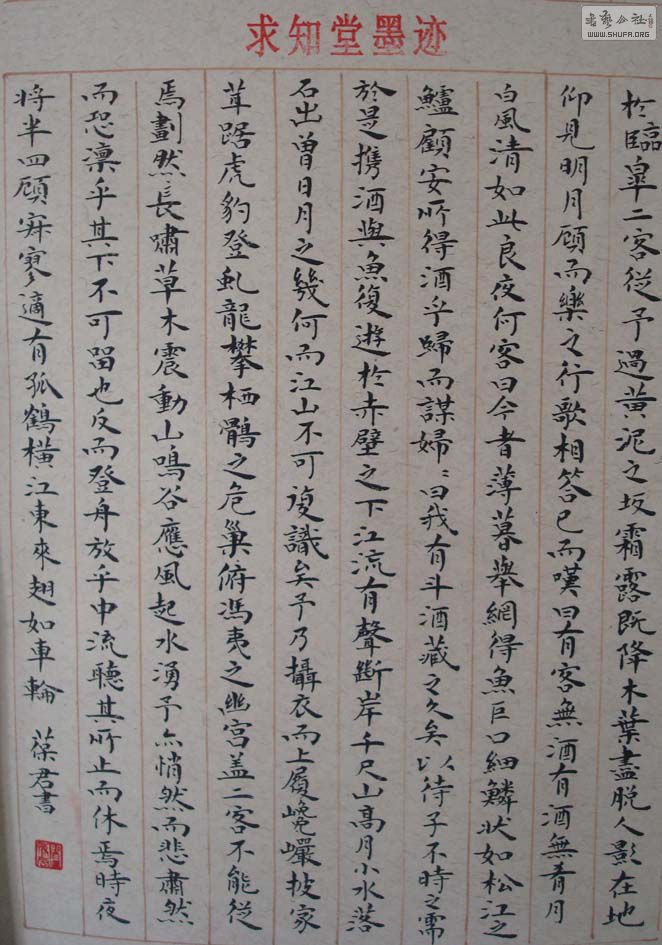 求知堂墨迹
書法公社
WWW.SHUFA.ORG
於臨皋二客從予過黃泥之坂霜露既降木葉盡脫人影在地
仰見明月顧而樂之行歌相答已而嘆曰有客無酒有酒無肴月
白風清如此良夜何客曰今者薄暮舉網得魚巨口細鱗狀如松江之
鱸顧安所得酒乎歸而謀婦〻曰我有斗酒藏之久矣以待子不時之需
於是携酒與魚復遊於赤壁之下江流有聲斷岸千尺山高月小水落
石出曾日月之幾何而江山不可復識矣予乃攝衣而上履巉巖披蒙
茸踞虎豹登虬龍攀栖鶻之危巢俯馮夷之幽宮盖二客不能從
焉劃然長嘯草木震動山鳴谷應風起水湧予亦悄然而悲肅然
而恐凛乎其下不可留也反而登舟放乎中流聽其所止而休焉時夜
将半四顧寂寥適有孤鶴橫江東來翅如車輪 葆君書